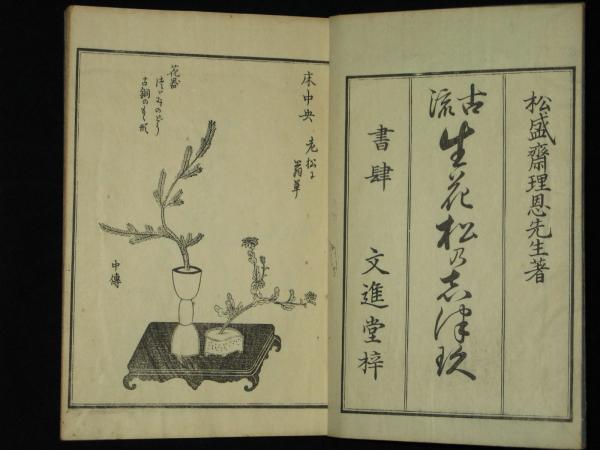 松盛齋理恩先生著
古流
生花松乃志津玖
書肆 文進堂梓
床中央 老松に
菊草
花器
古銅の
中傳